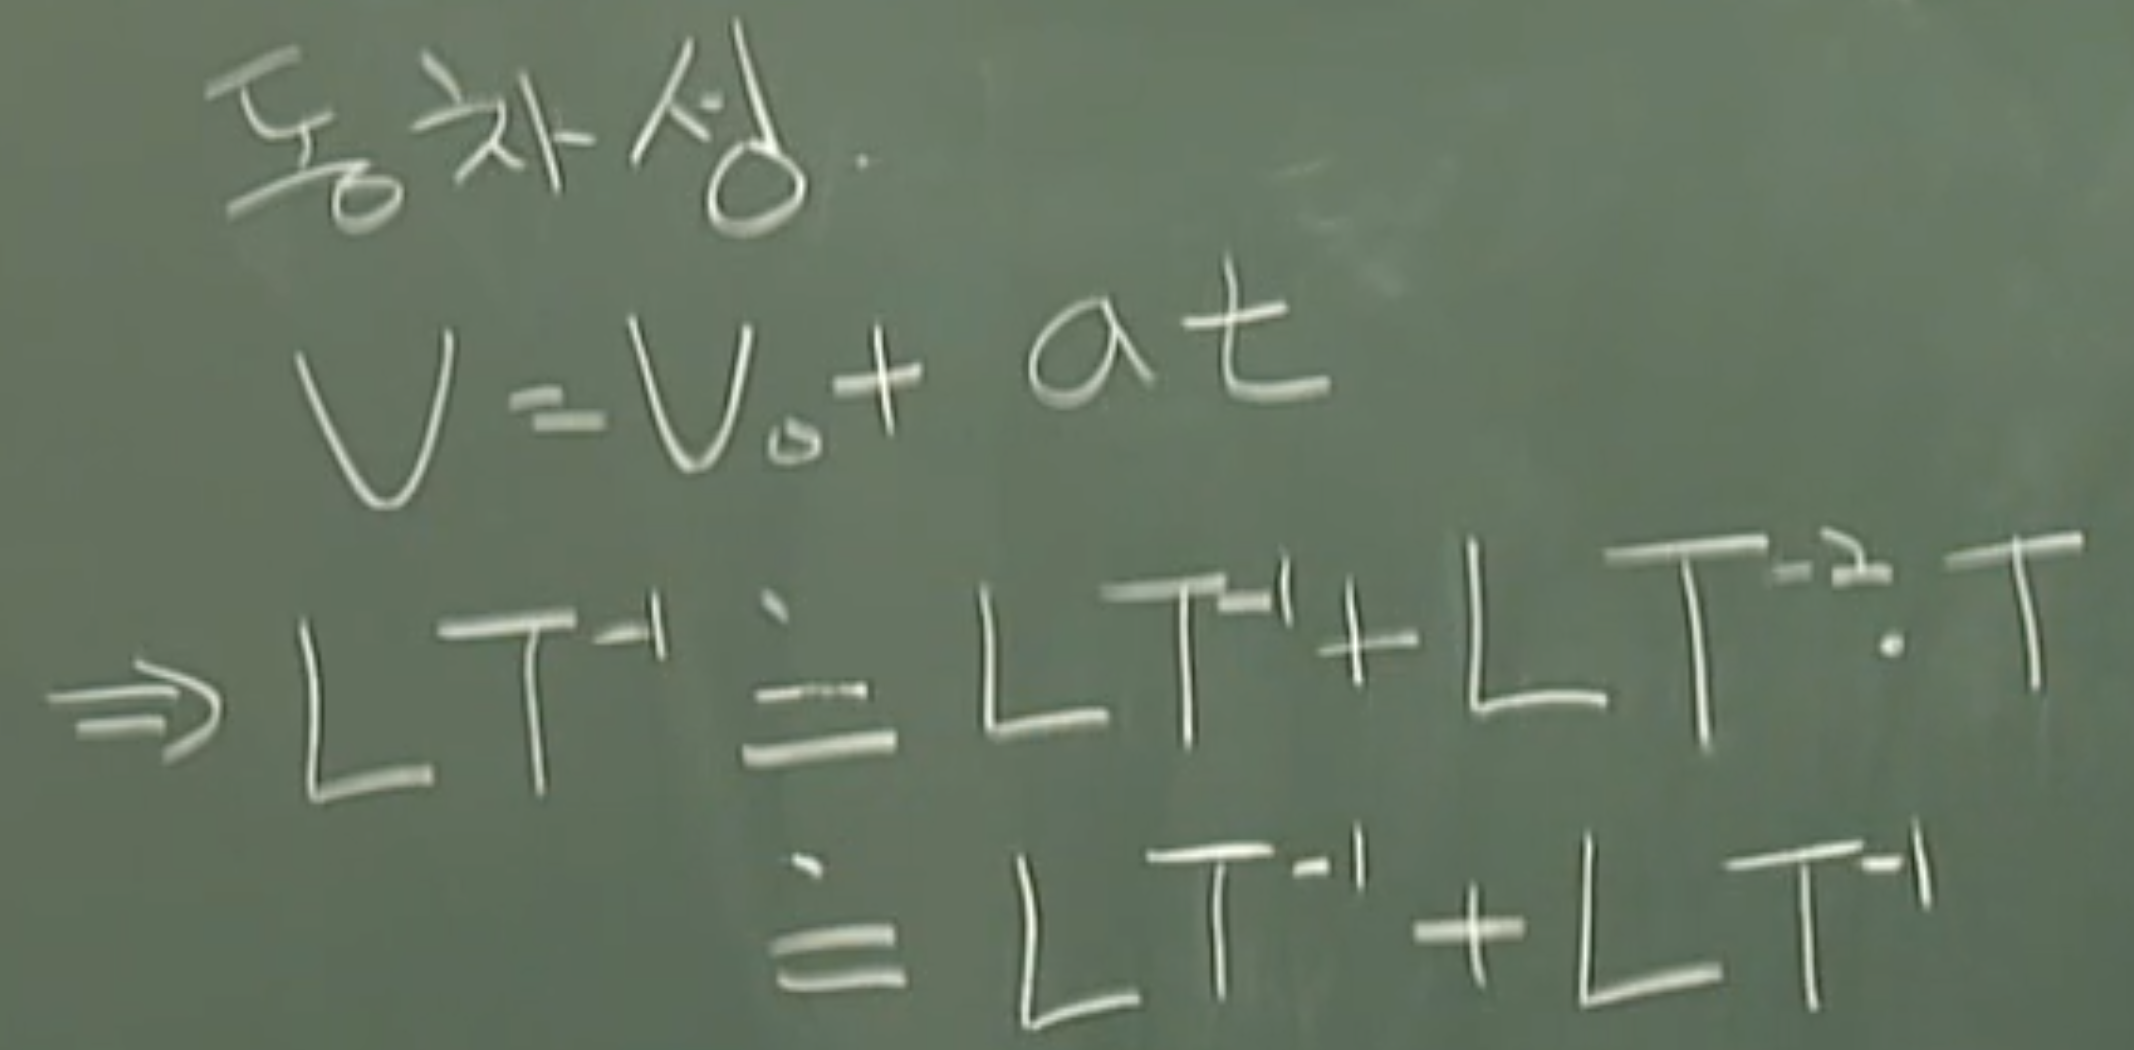 동차성.
V = V₀ + at
⇒ LT⁻¹ ≐ LT⁻¹ + LT⁻² · T
≐ LT⁻¹ + LT⁻¹